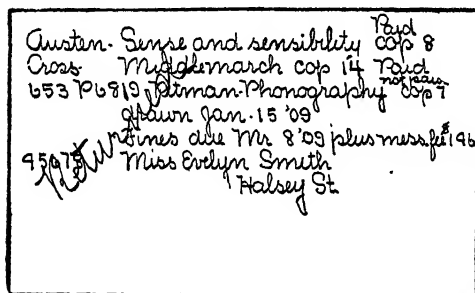 Austen. Sense and sensibility cop 8 Paid
Cross. Middlemarch cop 14 Paid
653 P6819 Pitman-Phonography cop 7 not paid
drawn Jan. 15 '09
Fines due Mr 8 '09 plus mess. fee
Miss Evelyn Smith
Halsey St.